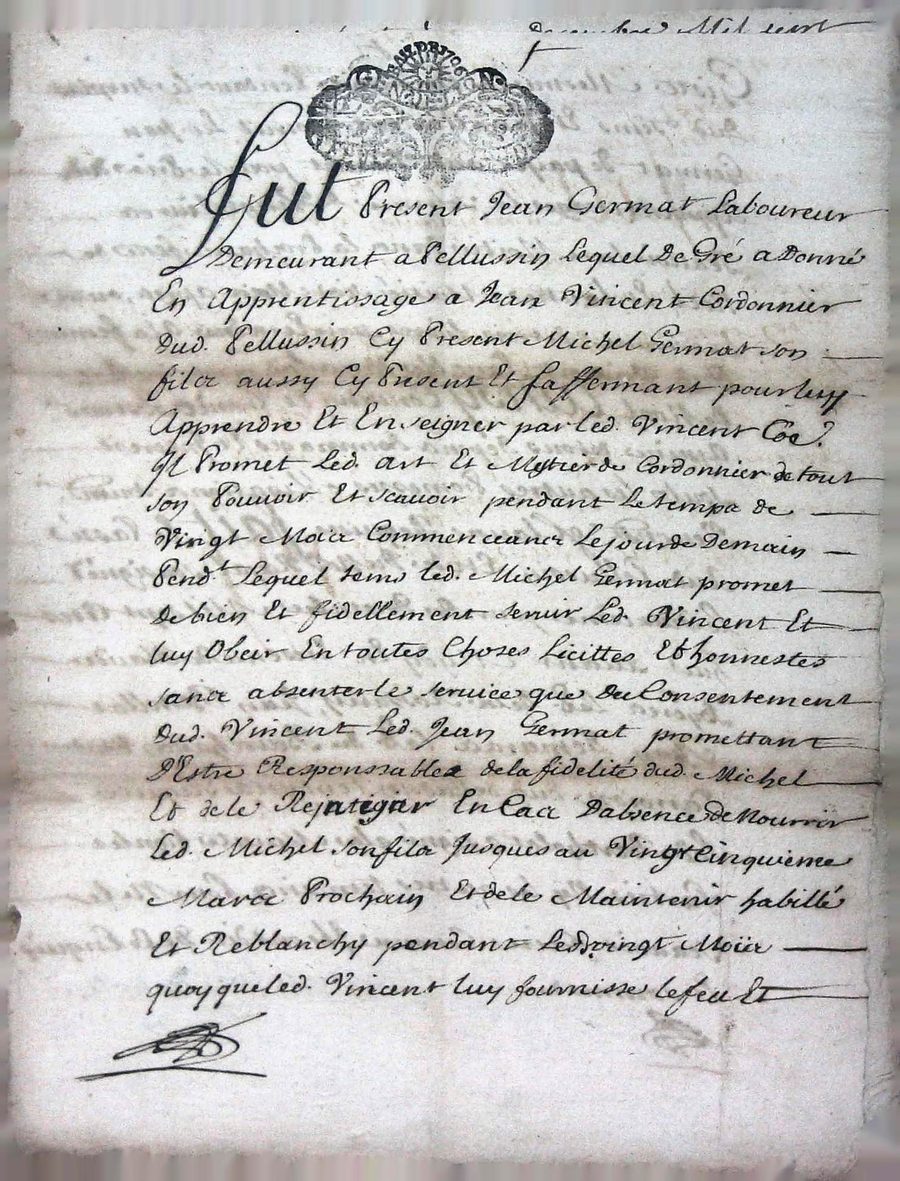 Mil sept
GEN DE LYON
BAIL DE 1706
fut Present Jean Germat Laboureur
Demeurant a Pellussin Lequel De Gré a Donné
En Apprentissage a Jean Vincent Cordonnier
Dud. Pellussin Cy Present Michel Germat son
fils aussy Cy Present Et
pour luy
Apprendre Et Enseigner par led. Vincent Coe.
Il Promet Led. art Et Mestier de Cordonnier de tout
son Pouvoir Et scavoir pendant Le temps de
Vingt Mois Commenceans Le jour de Demain
Pend.t Lequel tems led. Michel Germat promet
de bien Et fidellement servir Led. Vincent Et
luy Obeir En toutes Choses Licittes Et honnestes
sans absenter le service que du Consentement
Dud. Vincent Led. Jean Germat promettant
D'Estre Responssables de la fidelité dud. Michel
Et de le En Cas Dabsence de Nourrir
Led. Michel son fils Jusques au Vingt Cinquieme
Mars Prochain Et de le Maintenir habillé
Et Reblanchy pendant Lesd. vingt Mois
quoy que led. Vincent luy fournisse le feu Et